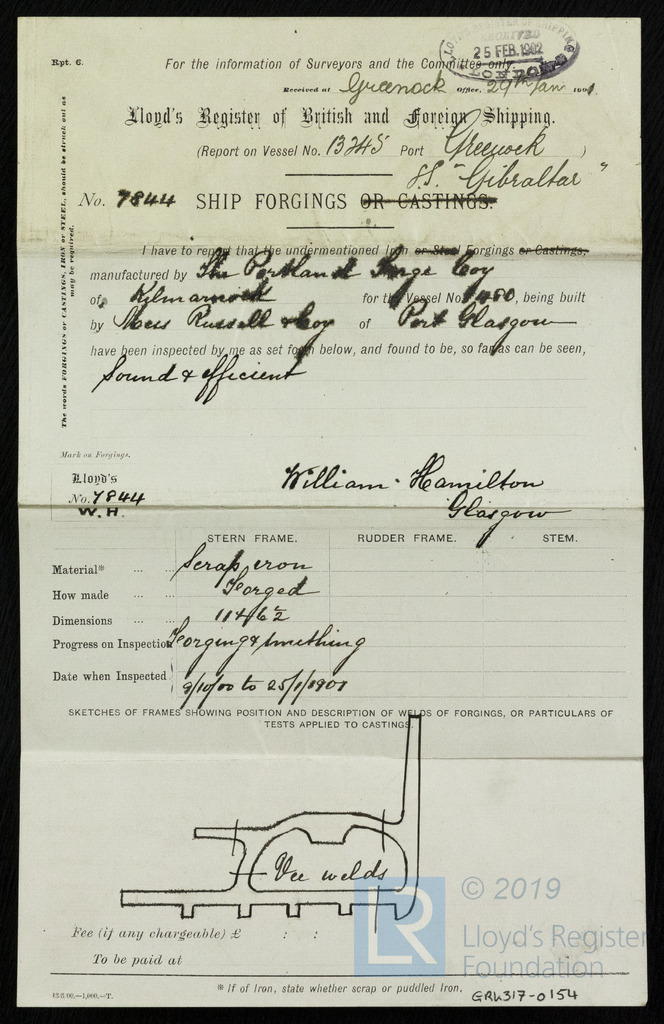 LLOYD'S REGISTER OF SHIPPING
25 FEB. 1902
LONDON
Rpt. 6.
For the information of Surveyors and the Committee only.
Received at Greenock Office, 29th Jan 1901
Lloyd's Register of British and Foreign Shipping.
(Report on Vessel No. 13245 Port Greenock )
S.S. "Gibraltar"
No. 7844 SHIP FORGINGS OR CASTINGS.
The words FORGINGS or CASTINGS, IRON or STEEL, should be struck out as
may be required.
I have to report that the undermentioned Iron or Steel Forgings or Castings,
manufactured by The Portland Forge Coy
of Kilmarnock for the Vessel No. 480, being built
by Mess Russell & Coy of Port Glasgow
have been inspected by me as set forth below, and found to be, so far as can be seen,
Sound & efficient
Mark on Forgings.
Lloyd's
No. 7844
W.H.
William Hamilton
Glasgow
STERN FRAME. RUDDER FRAME. STEM.
Material* ... ... Scrap iron
How made ... ... Forged
Dimensions ... ... 11 x 6½
Progress on Inspection Forging & smithing
Date when Inspected 9/10/00 to 25/1/1901
SKETCHES OF FRAMES SHOWING POSITION AND DESCRIPTION OF WELDS OF FORGINGS, OR PARTICULARS OF
TESTS APPLIED TO CASTINGS.
Vee welds
Fee (if any chargeable) £ : :
To be paid at
* If of Iron, state whether scrap or puddled Iron.
GRK317-0154
LR
© 2019
Lloyd's Register
Foundation